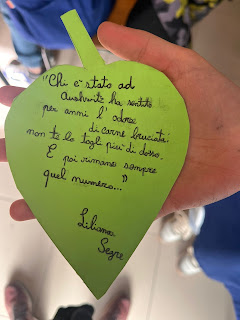 "Chi è stato ad
Auschwitz ha sentito
per anni l'odore
di carne bruciata:
non te lo togli più di dosso.
E poi rimane sempre
quel numero..."
Liliana
Segre